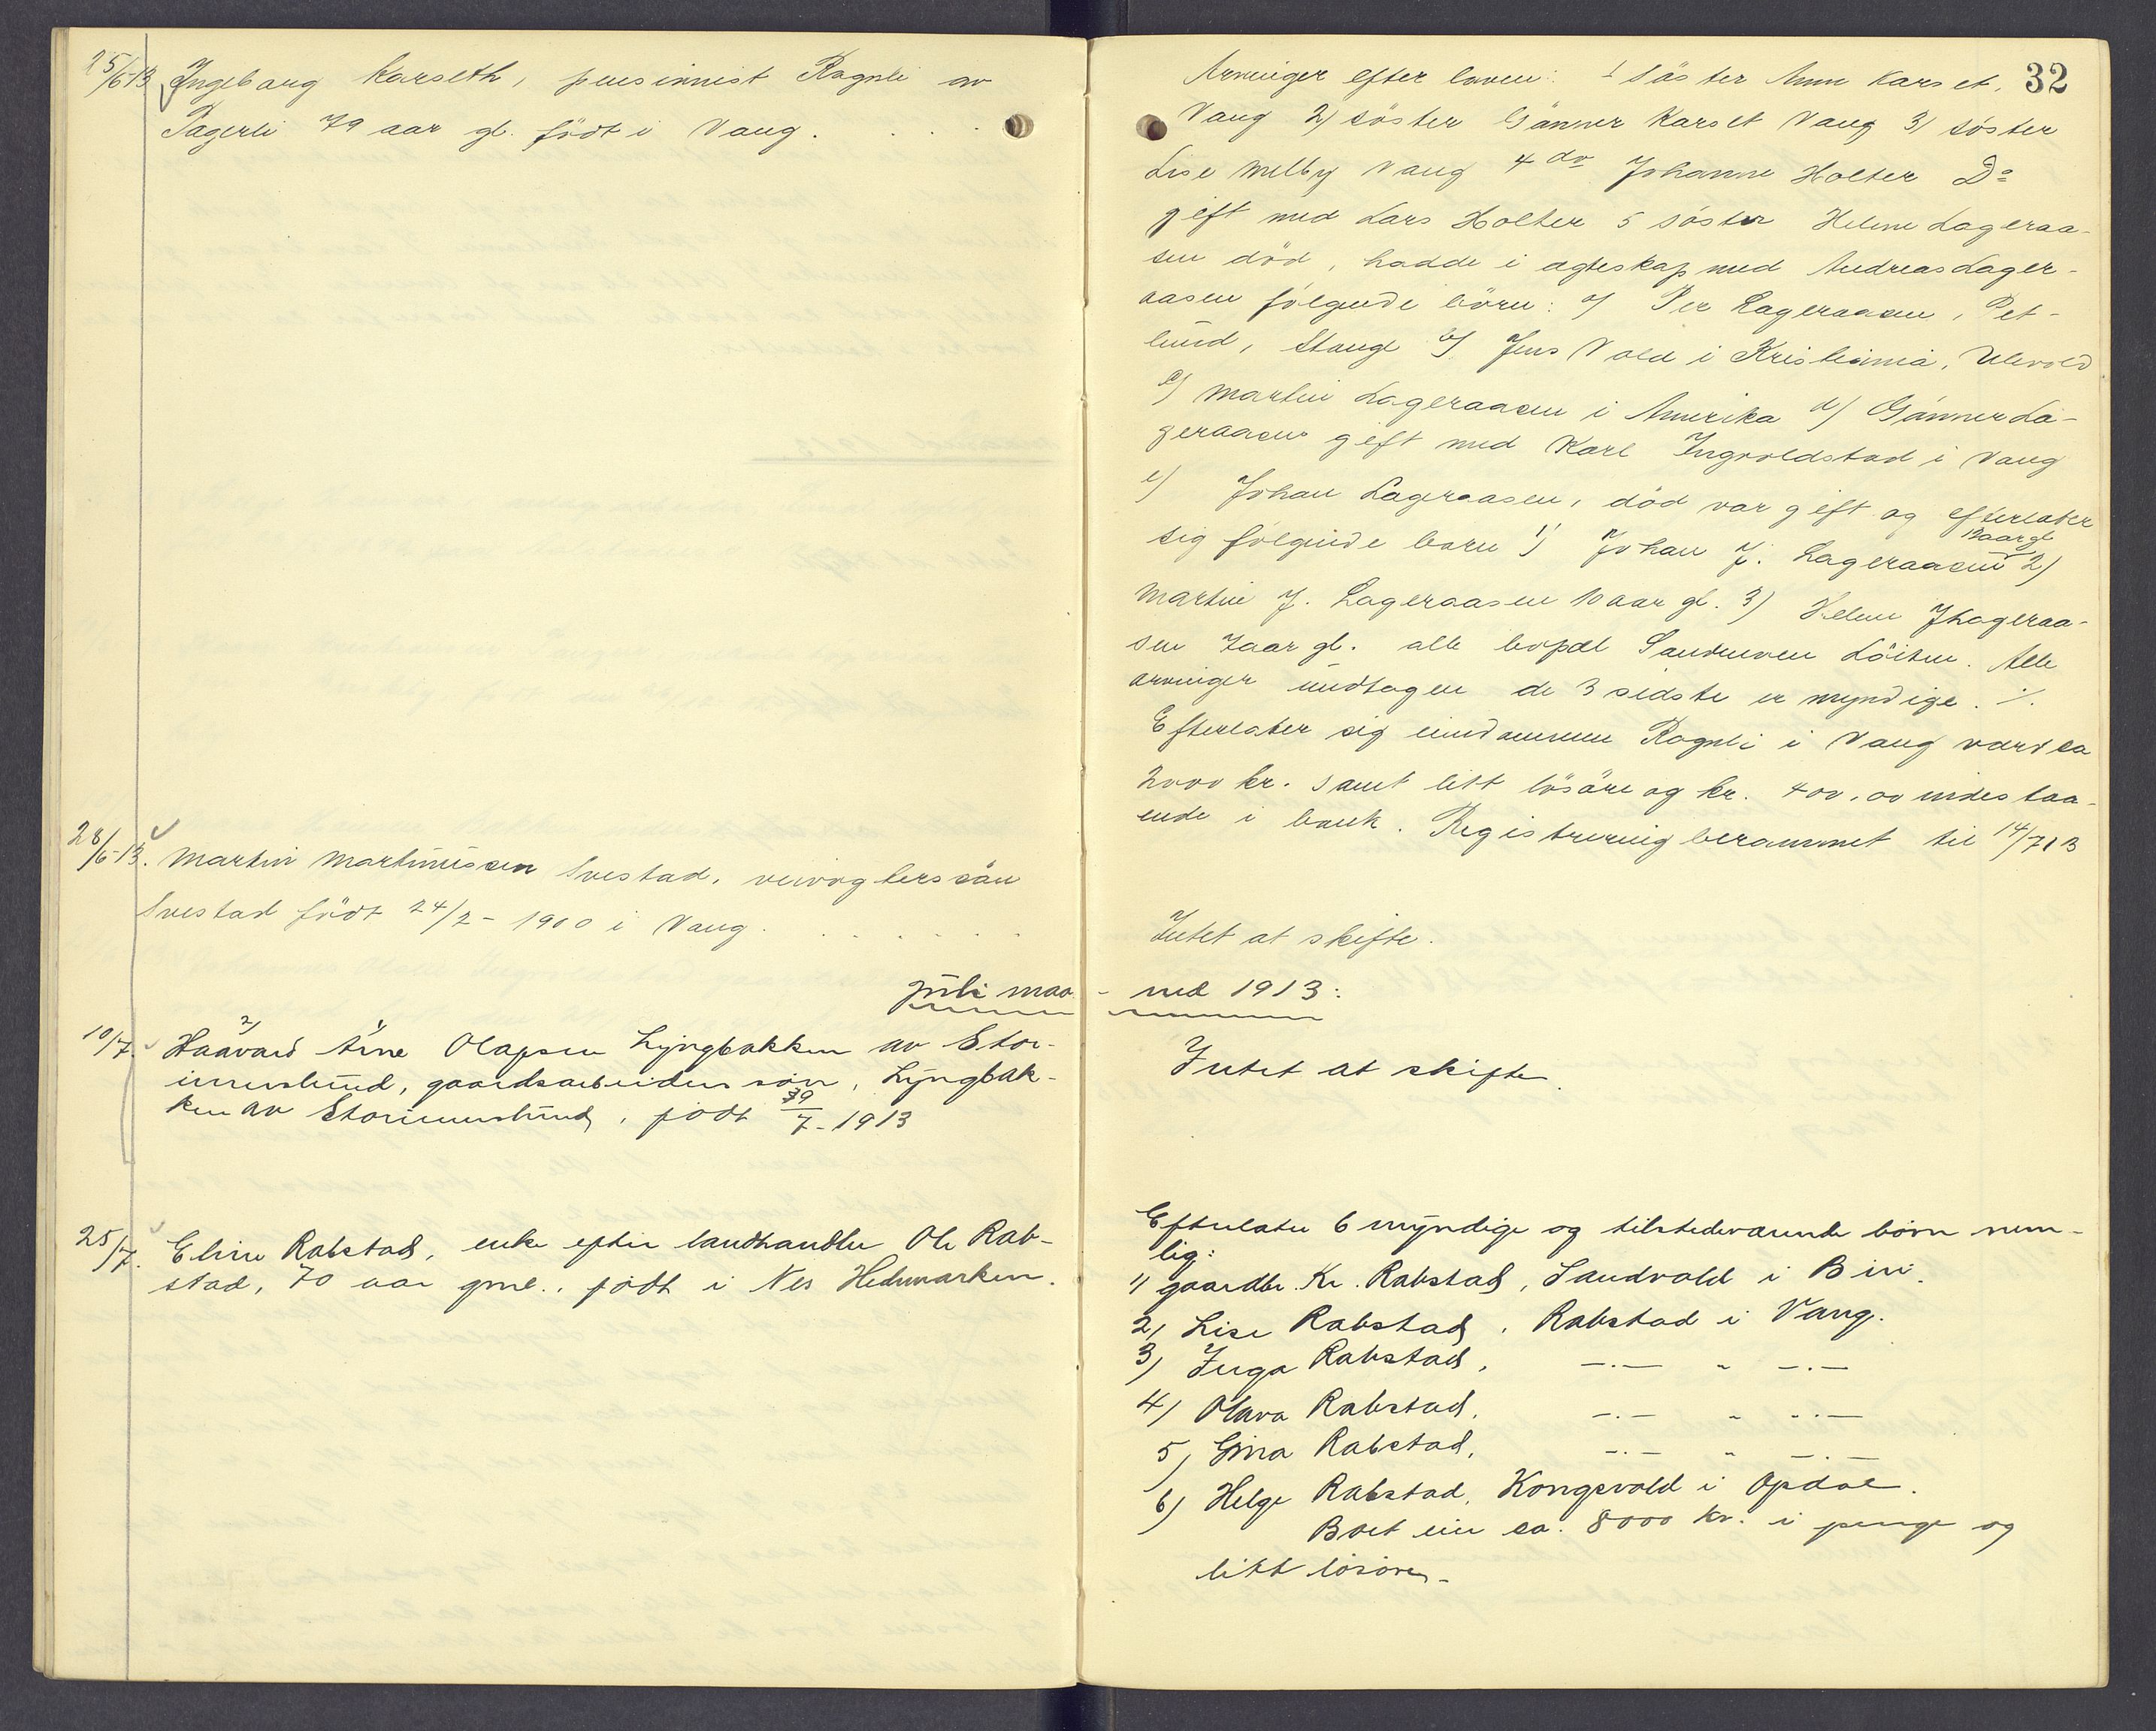 25/6-13 Ingeborg Karseth, pensionist Rognli av
Pagerli 79 aar gl. födt i Vang. . . . .
28/6-13. Martin Martinissen Svestad, veivogterssön
Svestad födt 24/2-1900 i Vang. . . . . . .
Juli maa-
10/7. Haavard Arne Olafsen Lyngbakken av Stor-
imerslund, gaardsarbeiders sön, Lyngbak-
ken av Storimerslund, födt 9/7-1913
25/7. Eline Rabstad, enke efter landhandler Ole Rab-
stad, 70 aar gml., födt i Nes Hedmarken.
32
Arvinger efter loven: 1 söster Anne Karset,
Vang 2) söster Gunner Karset Vang 3) söster
Lise Melby Vang 4 do Johanne Holter Do
gift med Lars Holter 5 söster Helene Lageraa-
sen död, hadde i egteskap med Andreas Lager-
aasen fölgende börn: a) Per Lageraasen, Pet-
lund, Stange b) Jens Vold i Kristiania, Ulevold
c) Martin Lageraasen i Amerika d) Gunner La-
geraasen gift med Karl Ingvoldstad i Vang
e) Johan Lageraasen, död var gift og efterlater
sig fölgende barn 1) Johan J. Lageraasen 12 aar gl 2)
Martin J. Lageraasen 10 aar gl. 3) Helene J Lageraa-
sen 7 aar gl. alle bopæl Sandmoen Löiten. Alle
arvinger undtagen de 3 sidste er myndige. ./.
Efterlater sig eiendommen Rognli i Vang værd ca
2000 kr. samt litt lösöre og kr. 400,00 indestaa-
ende i bank. Registrering berammet til 14/7 13
Intet at skifte.
ned 1913:
Intet at skifte.
Efterlater 6 myndige og tilstedeværende börn nem-
lig:
1) gaardbr. Kr. Rabstad, Sandvold i Biri.
2) Lise Rabstad, Rabstad i Vang.
3) Inga Rabstad, —.— " —.—
4) Olava Rabstad, —.— " —.—
5) Gina Rabstad, —.— " —.—
6) Helge Rabstad, Kongsvold i Opdal.
Boet eier ca. 8000 kr. i penge og
litt lösöre.